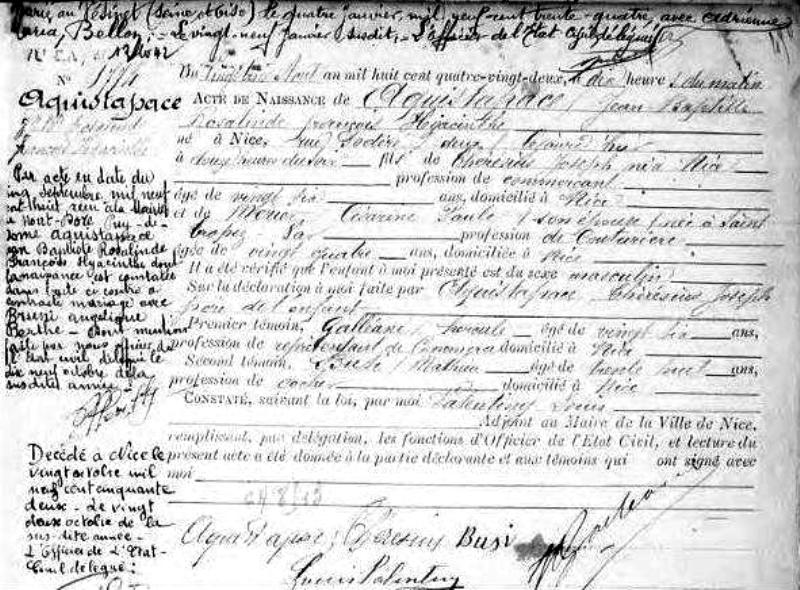 Marié au Vésinet (Seine et Oise) le quatre janvier, mil neuf cent trente-quatre, avec Adrienne
Maria, Bellon, - le vingt-neuf janvier susdit, - L'Officier de l'Etat Civil délégué
N°
Aquistapace
Par acte en date du
cinq septembre mil neuf
cent huit, reçu à la Mairie
du Mont-Dore Puy-de-
Dôme Aquistapace
Jean Baptiste Rosalinde
François Hyacinthe dont
la naissance est constatée
dans l'acte ci contre a
contracté mariage avec
Brunzi Angélique
Berthe - Dont mention
faite par nous officier de
l'Etat civil délégué le
dix neuf octobre de la
susdite année.
Décédé à Nice le
vingt octobre mil
neuf cent cinquante
deux - Le vingt
deux octobre de la
sus-dite année -
L'Officier de L'Etat-
Civil délégué:
Du vingt six Août an mil huit cent quatre-vingt-deux, à dix heures du matin
ACTE DE NAISSANCE de Aquistapace, Jean Baptiste
Rosalinde François Hyacinthe
né à Nice, rue
à douze heures du soir fils de Thérésius Joseph né à Nice
profession de commerçant
âgé de vingt six ans, domicilié à Nice
et de Césarine Paule son épouse née à Saint
Tropez Var profession de Couturière
âgée de vingt quatre ans, domiciliée à Nice
Il a été vérifié que l'enfant à moi présenté est du sexe masculin
Sur la déclaration à moi faite par Aquistapace, Thérésius Joseph
père de l'enfant
Premier témoin, Galléani, hercule âgé de vingt six ans,
profession de représentant de commerce domicilié à Nice
Second témoin, Busi Mathieu âgé de trente huit ans,
profession de cocher domicilié à Nice
CONSTATÉ, suivant la loi, par moi Valentiny Louis
Adjoint au Maire de la Ville de Nice,
remplissant, par délégation, les fonctions d'Officier de l'Etat Civil, et lecture du
présent acte a été donnée à la partie déclarante et aux témoins qui ont signé avec
moi
Aquistapace Thérésius Busi
Louis Valentiny